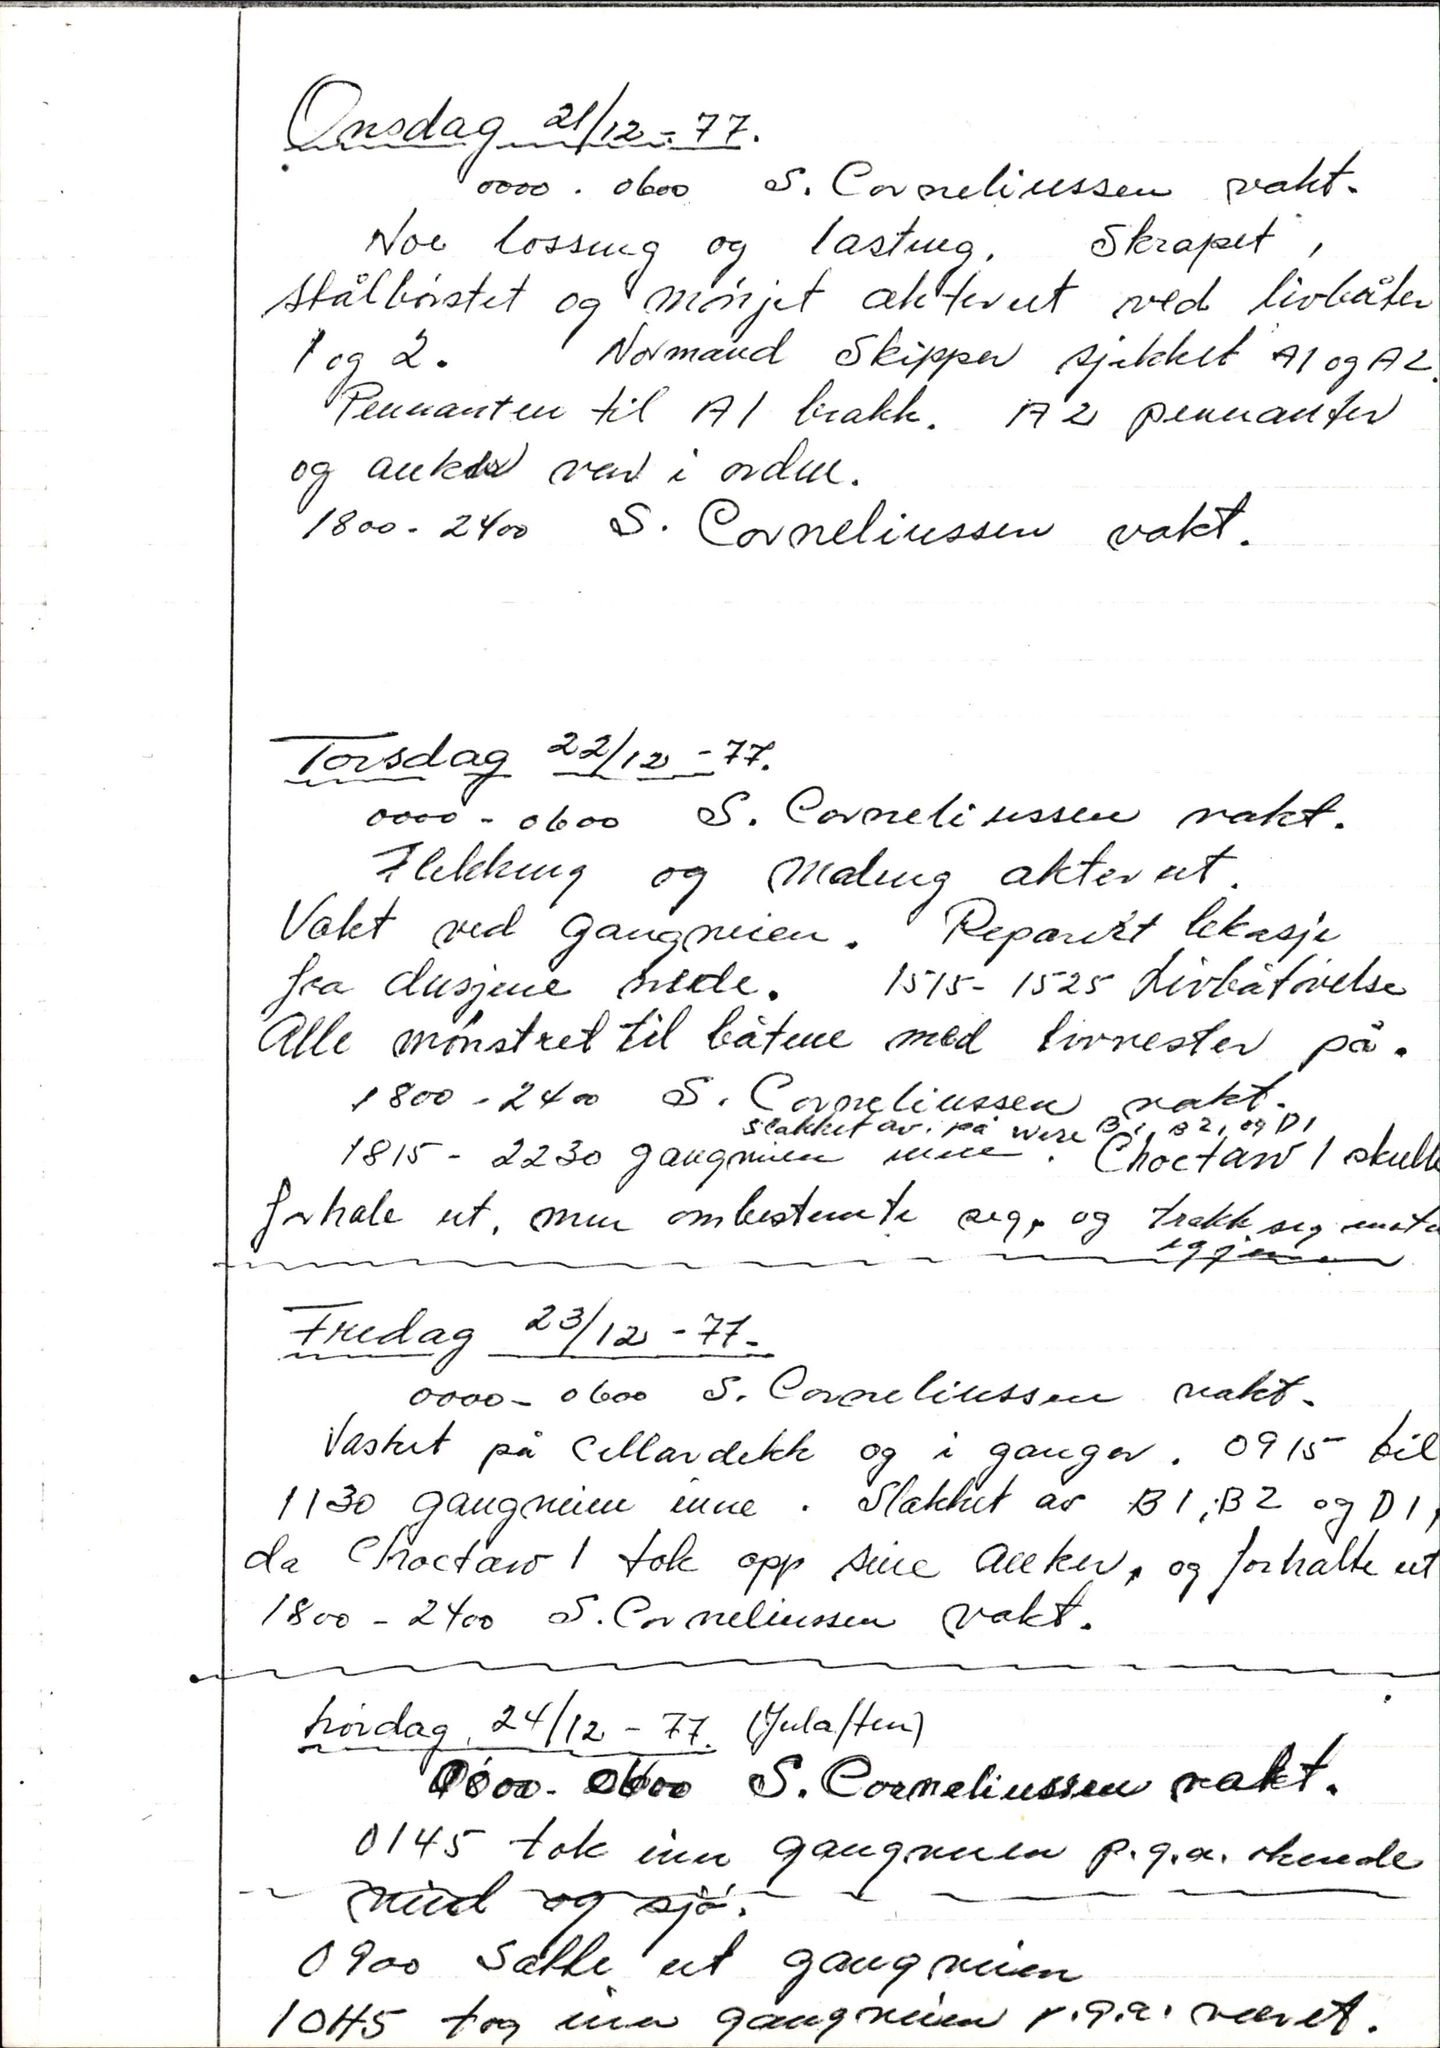 Onsdag 21/12-77.
0000 - 0600 S. Corneliussen vakt.
Noe lossing og lasting. Skrapet,
stålbørstet og mønjet akterut ved livbåter
1 og 2. Normand Skipper sjekket A1 og A2.
Pennanten til A1 brakk. A2 pennanter
og anker var i orden.
1800 - 2400 S. Corneliussen vakt.
Torsdag 22/12 - 77.
0000 - 0600 S. Corneliussen vakt.
Flekking og maling akterut.
Vakt ved gangveien. Reparert lekasje
fra dusjene nede. 1515 - 1525 Livbåtøvelse
Alle mønstret til båtene med livvester på.
1800 - 2400 S. Corneliussen vakt.
slakket av på wire B1, B2, og D1
1815 - 2230 gangveien inne. Choctaw 1 skulle
forhale ut, men ombestemte seg, og trakk seg
iggjen
Fredag 23/12 - 77.
0000 - 0600 S. Corneliussen vakt.
Vasket på cellardekk og i ganger. 0915 til
1130 gangveien inne. Slakket av B1, B2 og D1,
da Choctaw 1 tok opp sine anker, og forhalte ut
1800 - 2400 S. Corneliussen vakt.
Lørdag 24/12 - 77. (Julaften)
0000 - 0600 S. Corneliussen vakt.
0145 tok inn gangveien p.g.a. økende
vind og sjø.
0900 Satte ut gangveien
1045 tog inn gangveien p.g.a. været.